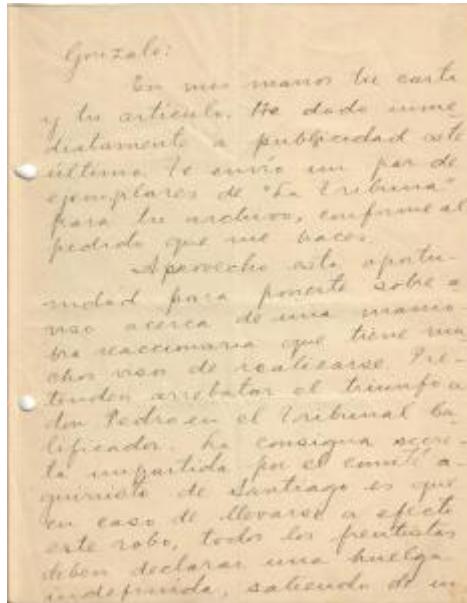 Gonzalo:
En mis manos tu carta
y tu artículo. He dado inme
diatamente a publicidad este
último. Te envío un par de
ejemplares de "La Tribuna"
para tu archivo, conforme al
pedido que me haces.
Aprovecho esta oportu-
nidad para ponerte sobre a
viso acerca de una manio-
bra reaccionaria que tiene mu
chos visos de realizarse. Pre-
tenden arrebatar el triunfo a
don Pedro en el Tribunal Ca
lificador. La consigna secre-
ta impartida por el comité a-
guirrista de Santiago es que
en caso de llevarse a efecto
este robo, todos los frentistas
deben declarar una huelga
indefinida, saliendo de un